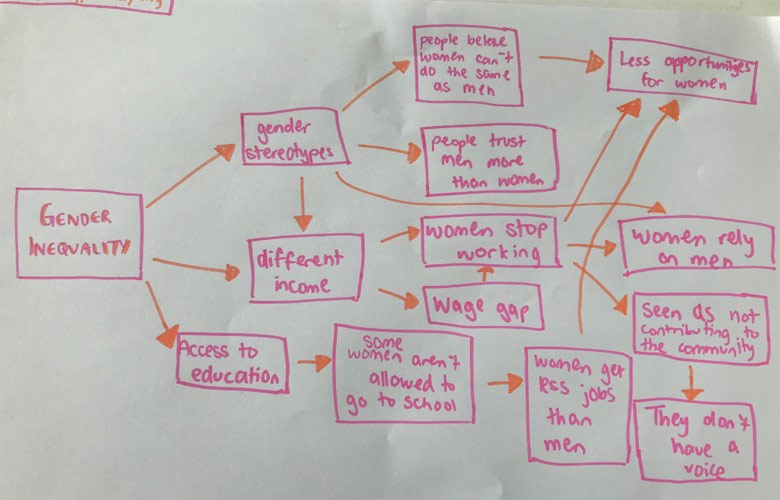 people beleve
women can't
do the same
as men
Less opportunities
for women
gender
stereotypes
people trust
men more
than women
GENDER
INEQUALITY
different
income
women stop
working
women rely
on men
wage gap
Seen as not
contributing to
the community
Access to
education
some
women aren't
allowed to
go to school
women get
less jobs
than
men
They don't
have a
voice